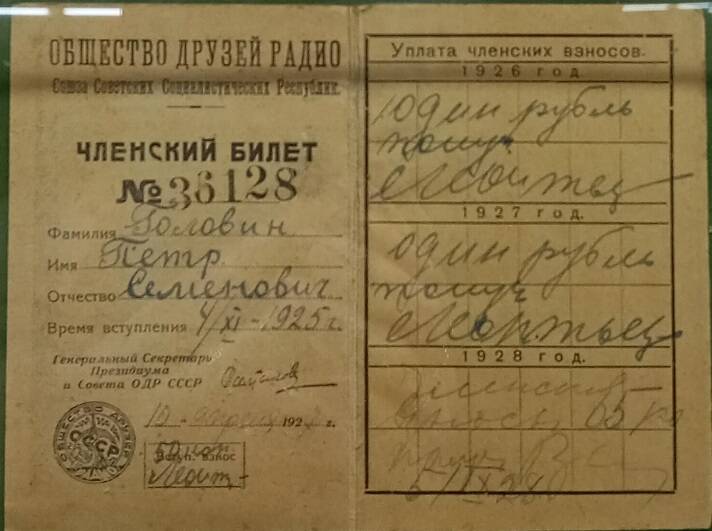 ОБЩЕСТВО ДРУЗЕЙ РАДИО
Союза Советских Социалистических Республик.
ЧЛЕНСКИЙ БИЛЕТ
№ 36128
Фамилия Головин
Имя Петр
Отчество Семенович
Время вступления 4/XI-1925 г.
Генеральный Секретарь
Президиума
и Совета ОДР СССР
10 192 г.
ОБЩЕСТВО ДРУЗЕЙ
СССР
50 коп
Вступ. взнос
Уплата членских взносов.
1926 год.
Один рубль
1927 год.
один рубль
1928 год.
65
5/IX 28